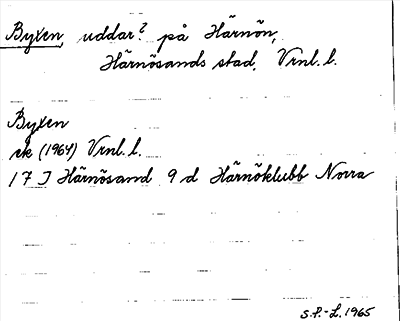 Byxen, uddar? på Härnön,
Härnösands stad, Vrnl. l.
Byxen
ek (1964) Vrnl. l.
17 J Härnösand 9 d Härnöklubb Norra
S.P.-L. 1965